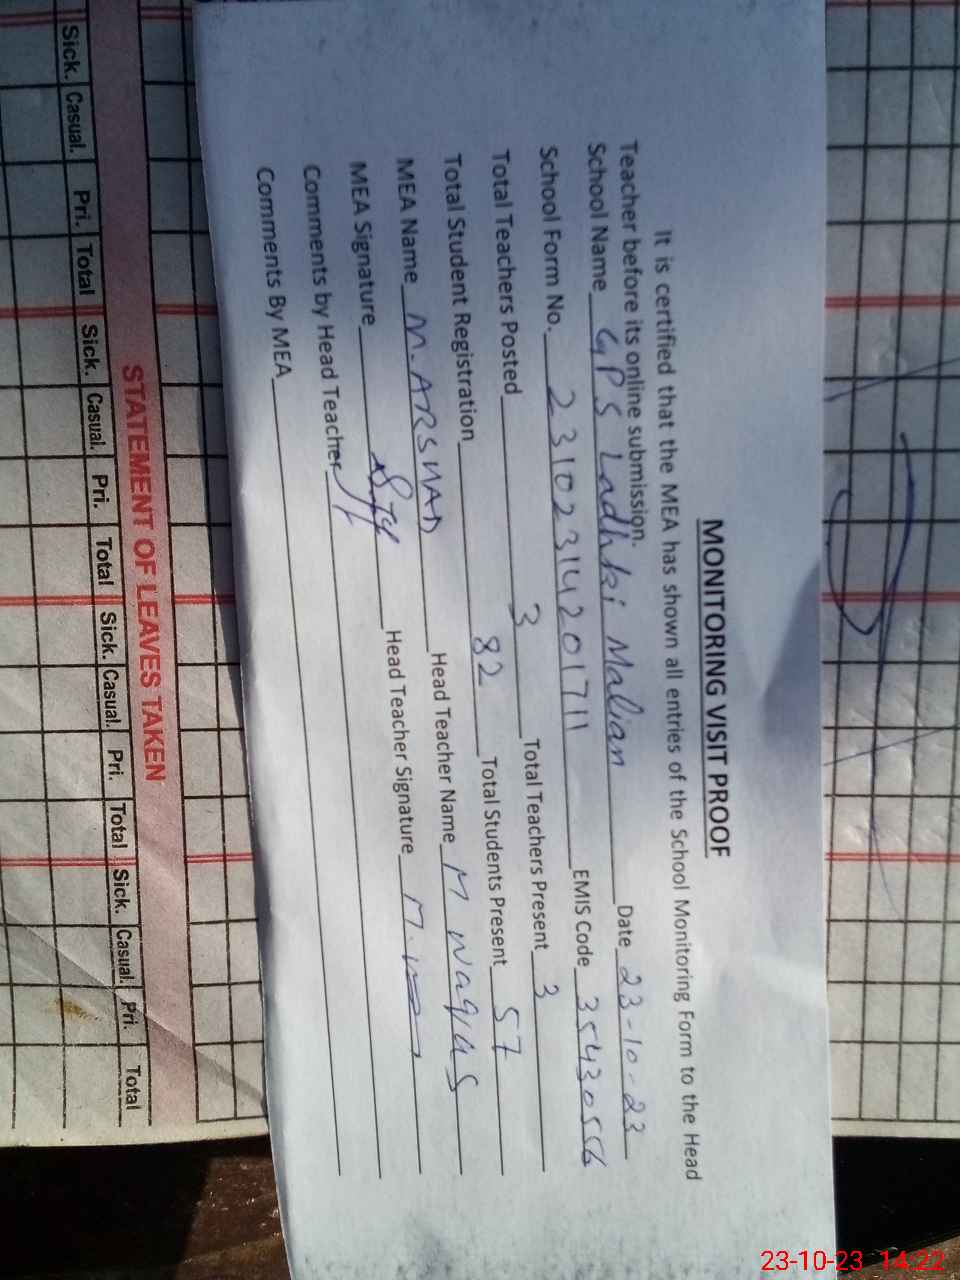 MONITORING VISIT PROOF
It is certified that the MEA has shown all entries of the School Monitoring Form to the Head
Teacher before its online submission.
School Name GPS Ladhki Malian Date 23-10-23
School Form No. 23102314201711 EMIS Code 35430556
Total Teachers Posted 3 Total Teachers Present 3
Total Student Registration 82 Total Students Present 57
MEA Name M.ARSHAD Head Teacher Name M Waqas
MEA Signature Head Teacher Signature
Comments by Head Teacher
Comments By MEA
STATEMENT OF LEAVES TAKEN
Sick. Casual. Pri. Total Sick. Casual. Pri. Total Sick. Casual. Pri. Total Sick. Casual. Pri. Total
23-10-23 14:22